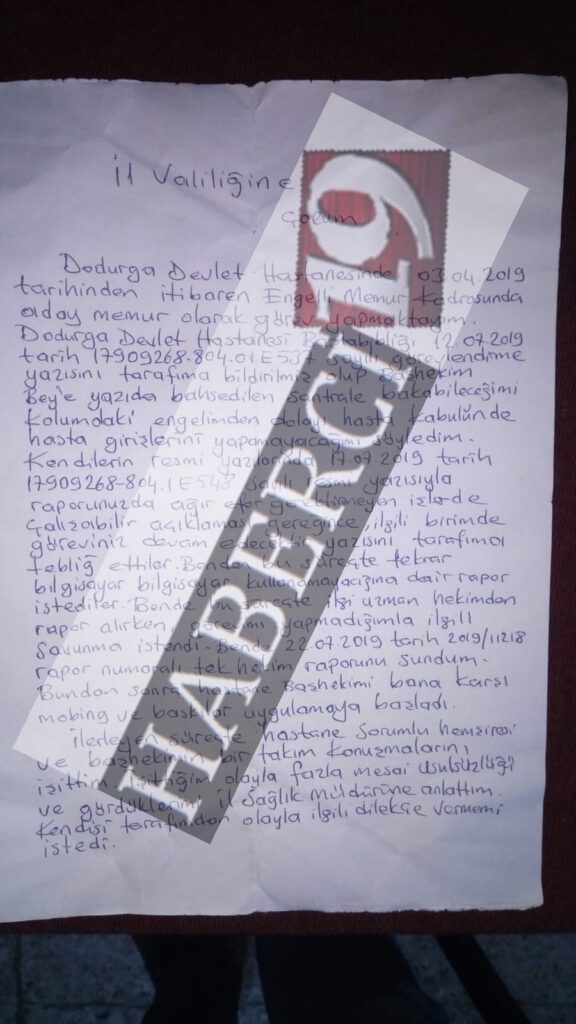 İl Valiliğine
Çorum
Dodurga Devlet Hastanesinde 03.04.2019
tarihinden itibaren Engelli Memur Kadrosunda
aday memur olarak görev yapmaktayım.
Dodurga Devlet Hastanesi Baştabibliği 12.07.2019
tarih 17909268-804.01E537 sayılı görevlendirme
yazısını tarafıma bildirilmiş olup Başhekim
Bey'e yazıda bahsedilen santrale bakabileceğimi
kolumdaki engelimden dolayı hasta kabulünde
hasta girişlerini yapamayacağımı söyledim.
Kendilerin resmi yazılarında 17.07.2019 tarih
17909268-804.1E548 sayılı resmi yazısıyla
raporunuzda ağır efor gerektirmeyen işlerde
çalışabilir açıklaması gereğince, ilgili birimde
göreviniz devam edecektir yazısını tarafıma
tebliğ ettiler. Bende bu süreçte tekrar
bilgisayar bilgisayar kullanamayacağıma dair rapor
istediler. Bende bu süreçte ilgi uzman hekimden
rapor alırken görevimi yapmadığımla ilgili
Savunma istendi. Bende 22.07.2019 tarih 2019/11218
rapor numaralı tek hekim raporunu sundum.
Bundan sonra hastane Başhekimi bana karşı
mobing ve baskılar uygulamaya başladı.
İlerleyen süreçte hastane Sorumlu hemşiresi
ve başhekimin bir takım konuşmalarını
işittim. İşittiğim olayla fazla mesai usulsüzlüğü
ve gördüklerimi il Sağlık müdürüne anlattım.
Kendisi tarafından olayla ilgili dilekçe vermemi
istedi.
HABERCİ19